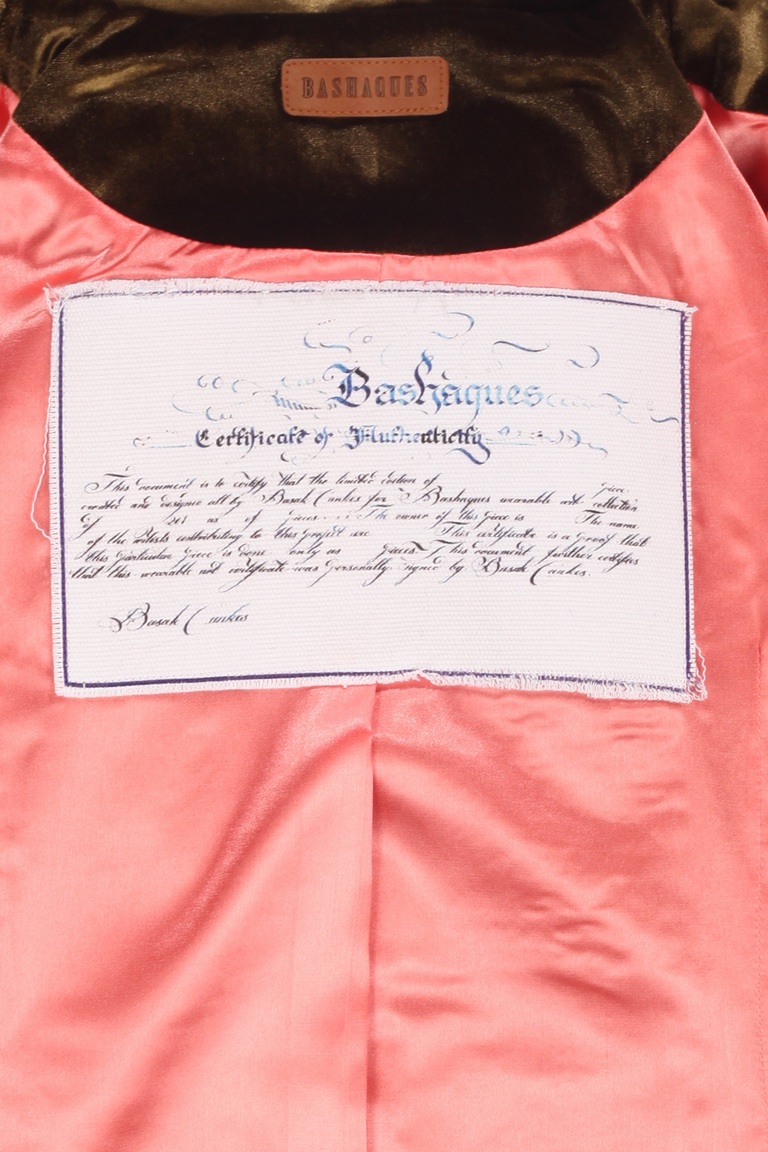 BASHAQUES
Bashaques
Certificate of Authenticity
This document is to certify that the limited edition of piece
created and designed all by Basak Cankes for Bashaques wearable art collection
of 201 as of pieces. The owner of this piece is The name
of the artists contributing to this project are This certificate is a proof that
this particular piece is done only as pieces. This document further certifies
that this wearable art certificate was personally signed by Basak Cankes.
Basak Cankes